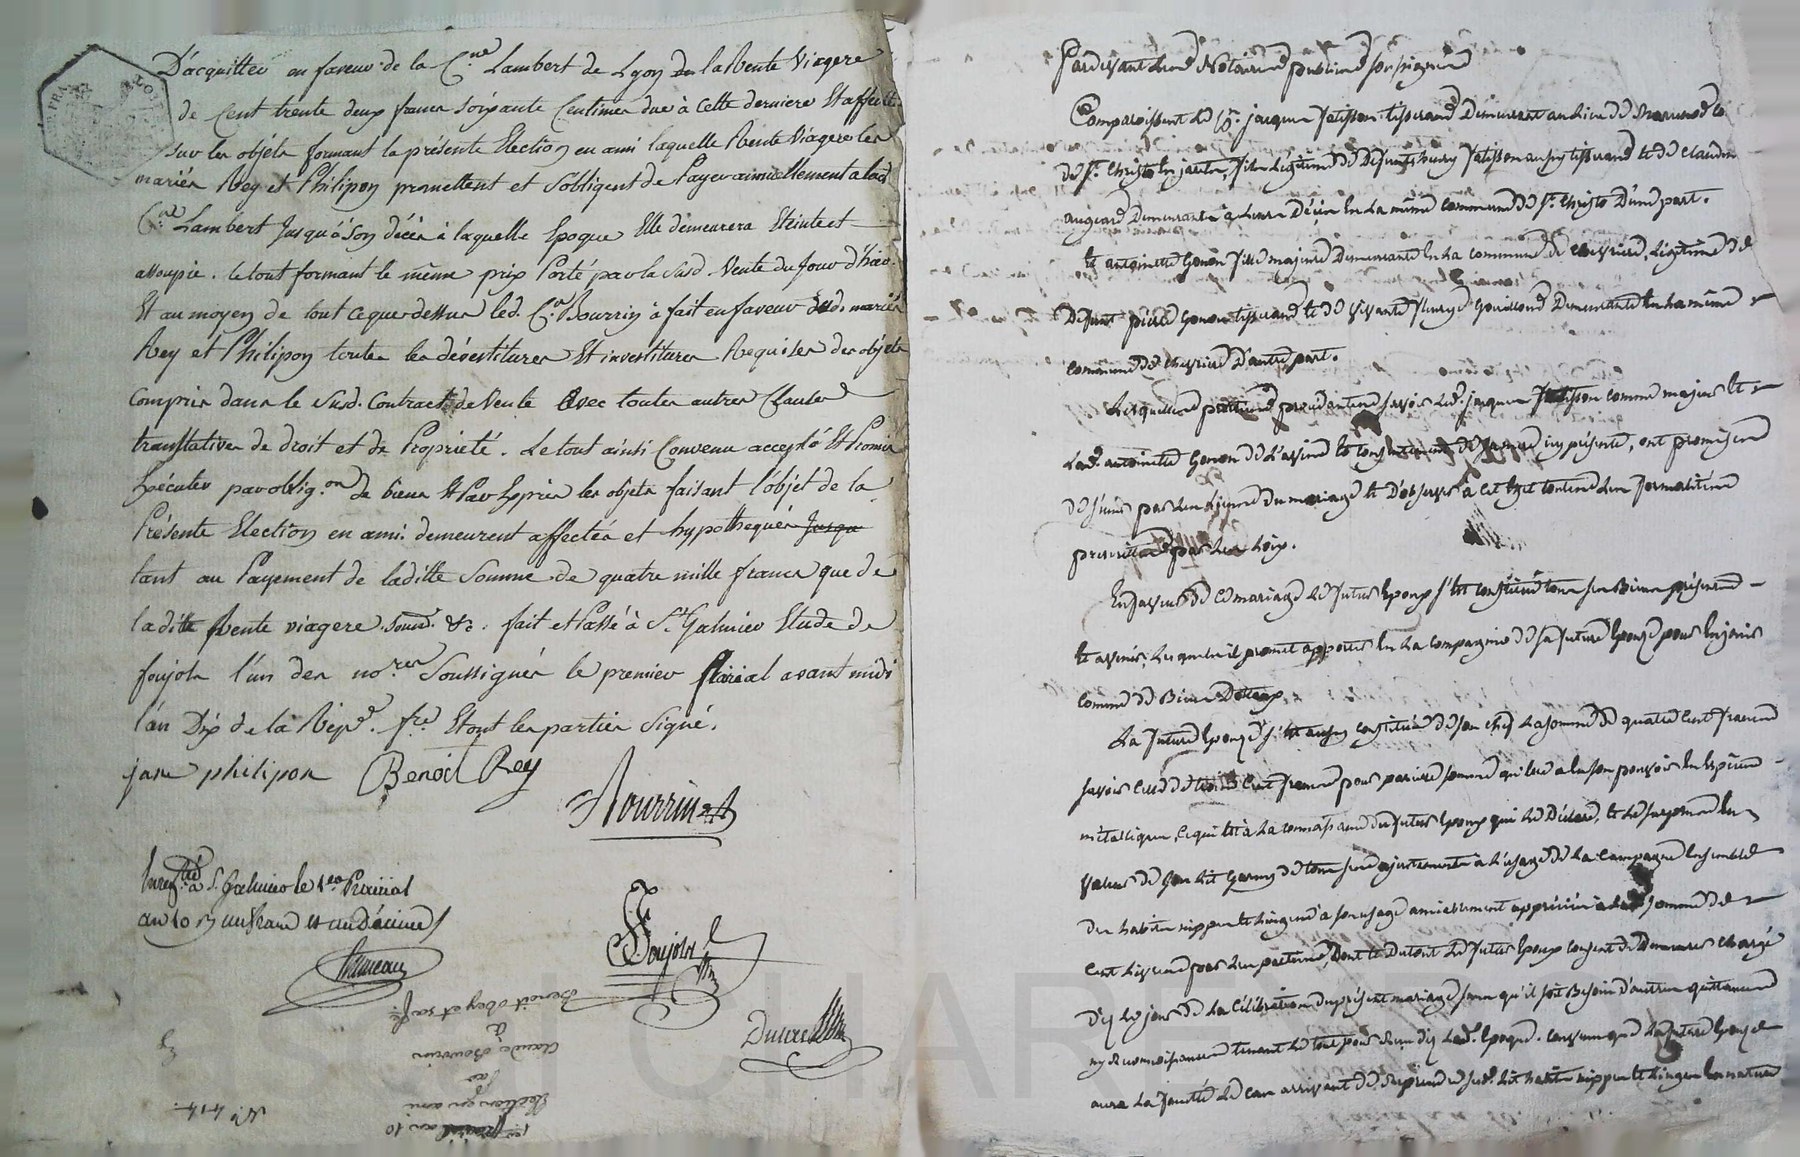 D'acquitter en faveur de la C.ne Lambert de Lyon de la Rente Viagere
de Cent trente deux francs soixante Centimes due à cette derniere Et affectée
sur les objets formant la présente Election en ami laquelle Rente Viagere les
mariés Rey et Philipon promettent et s'obligent de Payer annuellement a lad.
C.ne Lambert Jusqu'à son décès à laquelle Epoque Elle demeurera Eteinte et
assoupie. le tout formant le même prix Porté par la susd. Vente du Jour d'hier.
Et au moyen de tout ce que dessus led. C.n Bourrin à fait en faveur desd. mariés
Rey et Philipon toutes les dévestitures Et investitures Requises des objets
compris dans le susd. Contract de Vente avec toutes autres Clauses
translatives de droit et de Propriété. Le tout ainsi Convenu accepté Et Promis
Exécuter par oblig.on de biens Et Par Exprès les objets faisant l'objet de la
Présente Election en ami demeurent affectés et hypothequés Jusqu
tant au Payement de laditte somme de quatre mille francs que de
laditte Rente viagere. soum. &c. fait et Passé à S.t Galmier Etude de
foujols l'un des no.res Soussignés le premier floréal avant midi
l'an Dix de la Rep.e fr.e Et ont les parties signé.
jane philipon Benoit Rey
Bourrin
Enreg.tré à S.t Galmier le 1.er Prairial
an 10 R un franc et un Décime
Foujols
Benoit Rey et sa f.e
à
Claude Bourrin
par
Election en ami
an 10
N.o 414
Pardevant les Notaires publics soussignés
Comparoissent le C.n jacques fatisson tisserand Demeurant au lieu de
de S.t Christo en jarets, fils Légitime de Defunts fatisson aussy tisserand et de Claudine
Demeurants à leurs Décès En la même commune de S.t Christo D'une part.
Et antoinette Gonon fille majeure Demeurante En la commune de chevrieres, Légitime de
Defunt pierre Gonon tisserand et de Vivante Demeurante En la même
commune de chevrieres D'autre part.
Lesquelles parties procedantes savoir led. jacques fatisson comme majeur et
lad. antoinette Gonon de L'avis et Consentement de sa mere icy présente, ont promis
de s'unir par les Liens du mariage et D'observer à cet Effet toutes les formalités
prescrittes par les Loix.
En faveur de ce mariage le futur Epoux s'est constitué tous ses Biens présents
et avenir, lesquels il promet apporter En la Compagnie de sa future Epouse pour En jouir
comme de Biens Dotaux
La future Epouse s'est aussy constituée de son chef la somme de quatre Cent francs
savoir celle de trois Cent francs pour pareille somme qu'elle a En son pouvoir En Espèces
métalliques, ce qui Est à la connoissance du futur Epoux qui le Déclare, et le surplus En
valeur de son Lit Garny de tous ses ajustements à L'usage de la Campagne Ensemble
des habits nippes et Linges à son usage amiablement appréciés à la somme de
Cent Livres par les parties, Dont et Du tout le futur Epoux consent de Demeurer chargé
dès le jour de la célébration du présent mariage sans qu'il soit Besoin d'autres quittances
ny Reconnoissances tenant le tout pour Reçu dès lad. Epoque. convenu que la future Epouse
aura la faculté le cas arrivant de Reprendre sesd. Lit habits nippes et Linges En nature